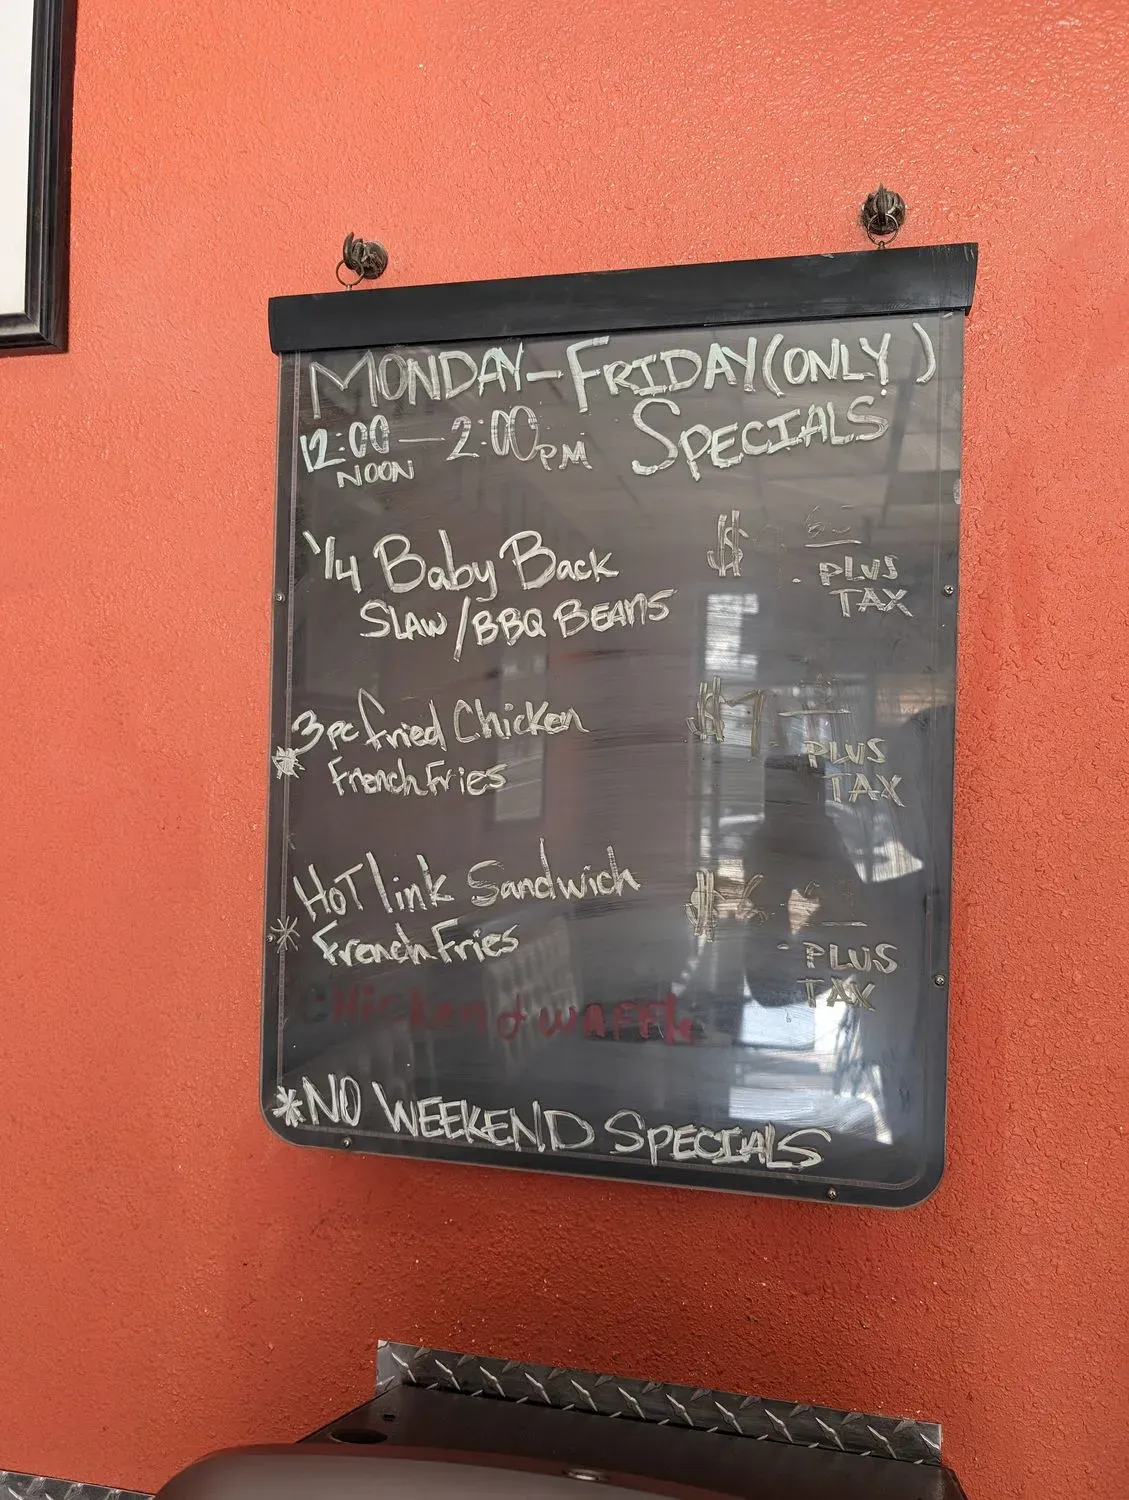 MONDAY-FRIDAY (ONLY)
12:00 - 2:00 PM SPECIALS
NOON
1/4 Baby Back $
PLUS
SLAW/BBQ BEANS TAX
3pc fried Chicken $7
* French Fries PLUS
TAX
HOT link Sandwich $
* French Fries PLUS
TAX
CHicken & waffle
*NO WEEKEND SPECIALS